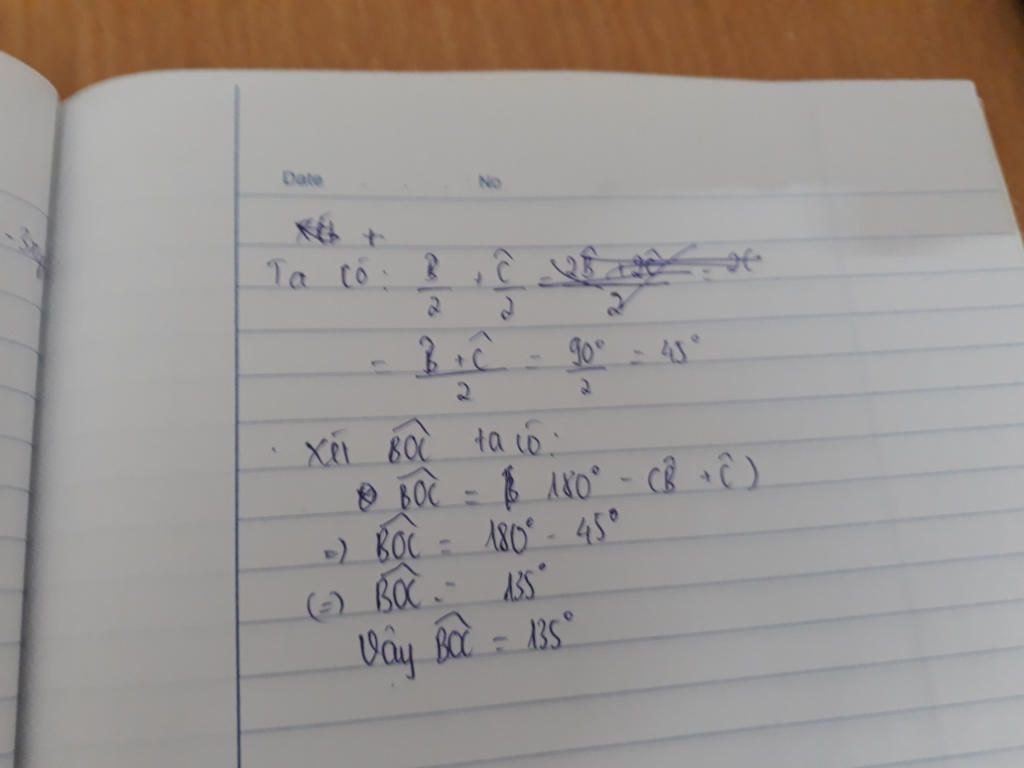 Date No
+
Ta có: B̂/2 + Ĉ/2 =
= (B̂ + Ĉ)/2 = 90°/2 = 45°
. Xét BOC̑ ta có:
BOC̑ = 180° - (B̂ + Ĉ)
=) BOC̑ = 180° - 45°
(=) BOC̑ = 135°
Vậy BOC̑ = 135°